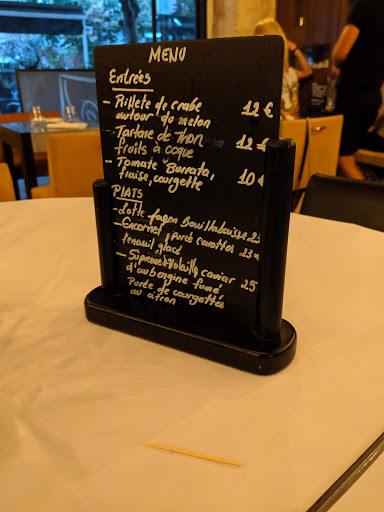 MENU
Entrées
- Rillete de crabe 12 €
autour du melon
- Tartare de Thon 12 €
fruits à coque
- Tomate Burrata, 10 €
fraise, courgette
PLATS
- Lotte façon Bouillabaisse
- Encornet, Purée carottes
fenouil glacé
- Suprême de Volaille caviar 25
d'aubergine fumé
Purée de courgettes
au citron